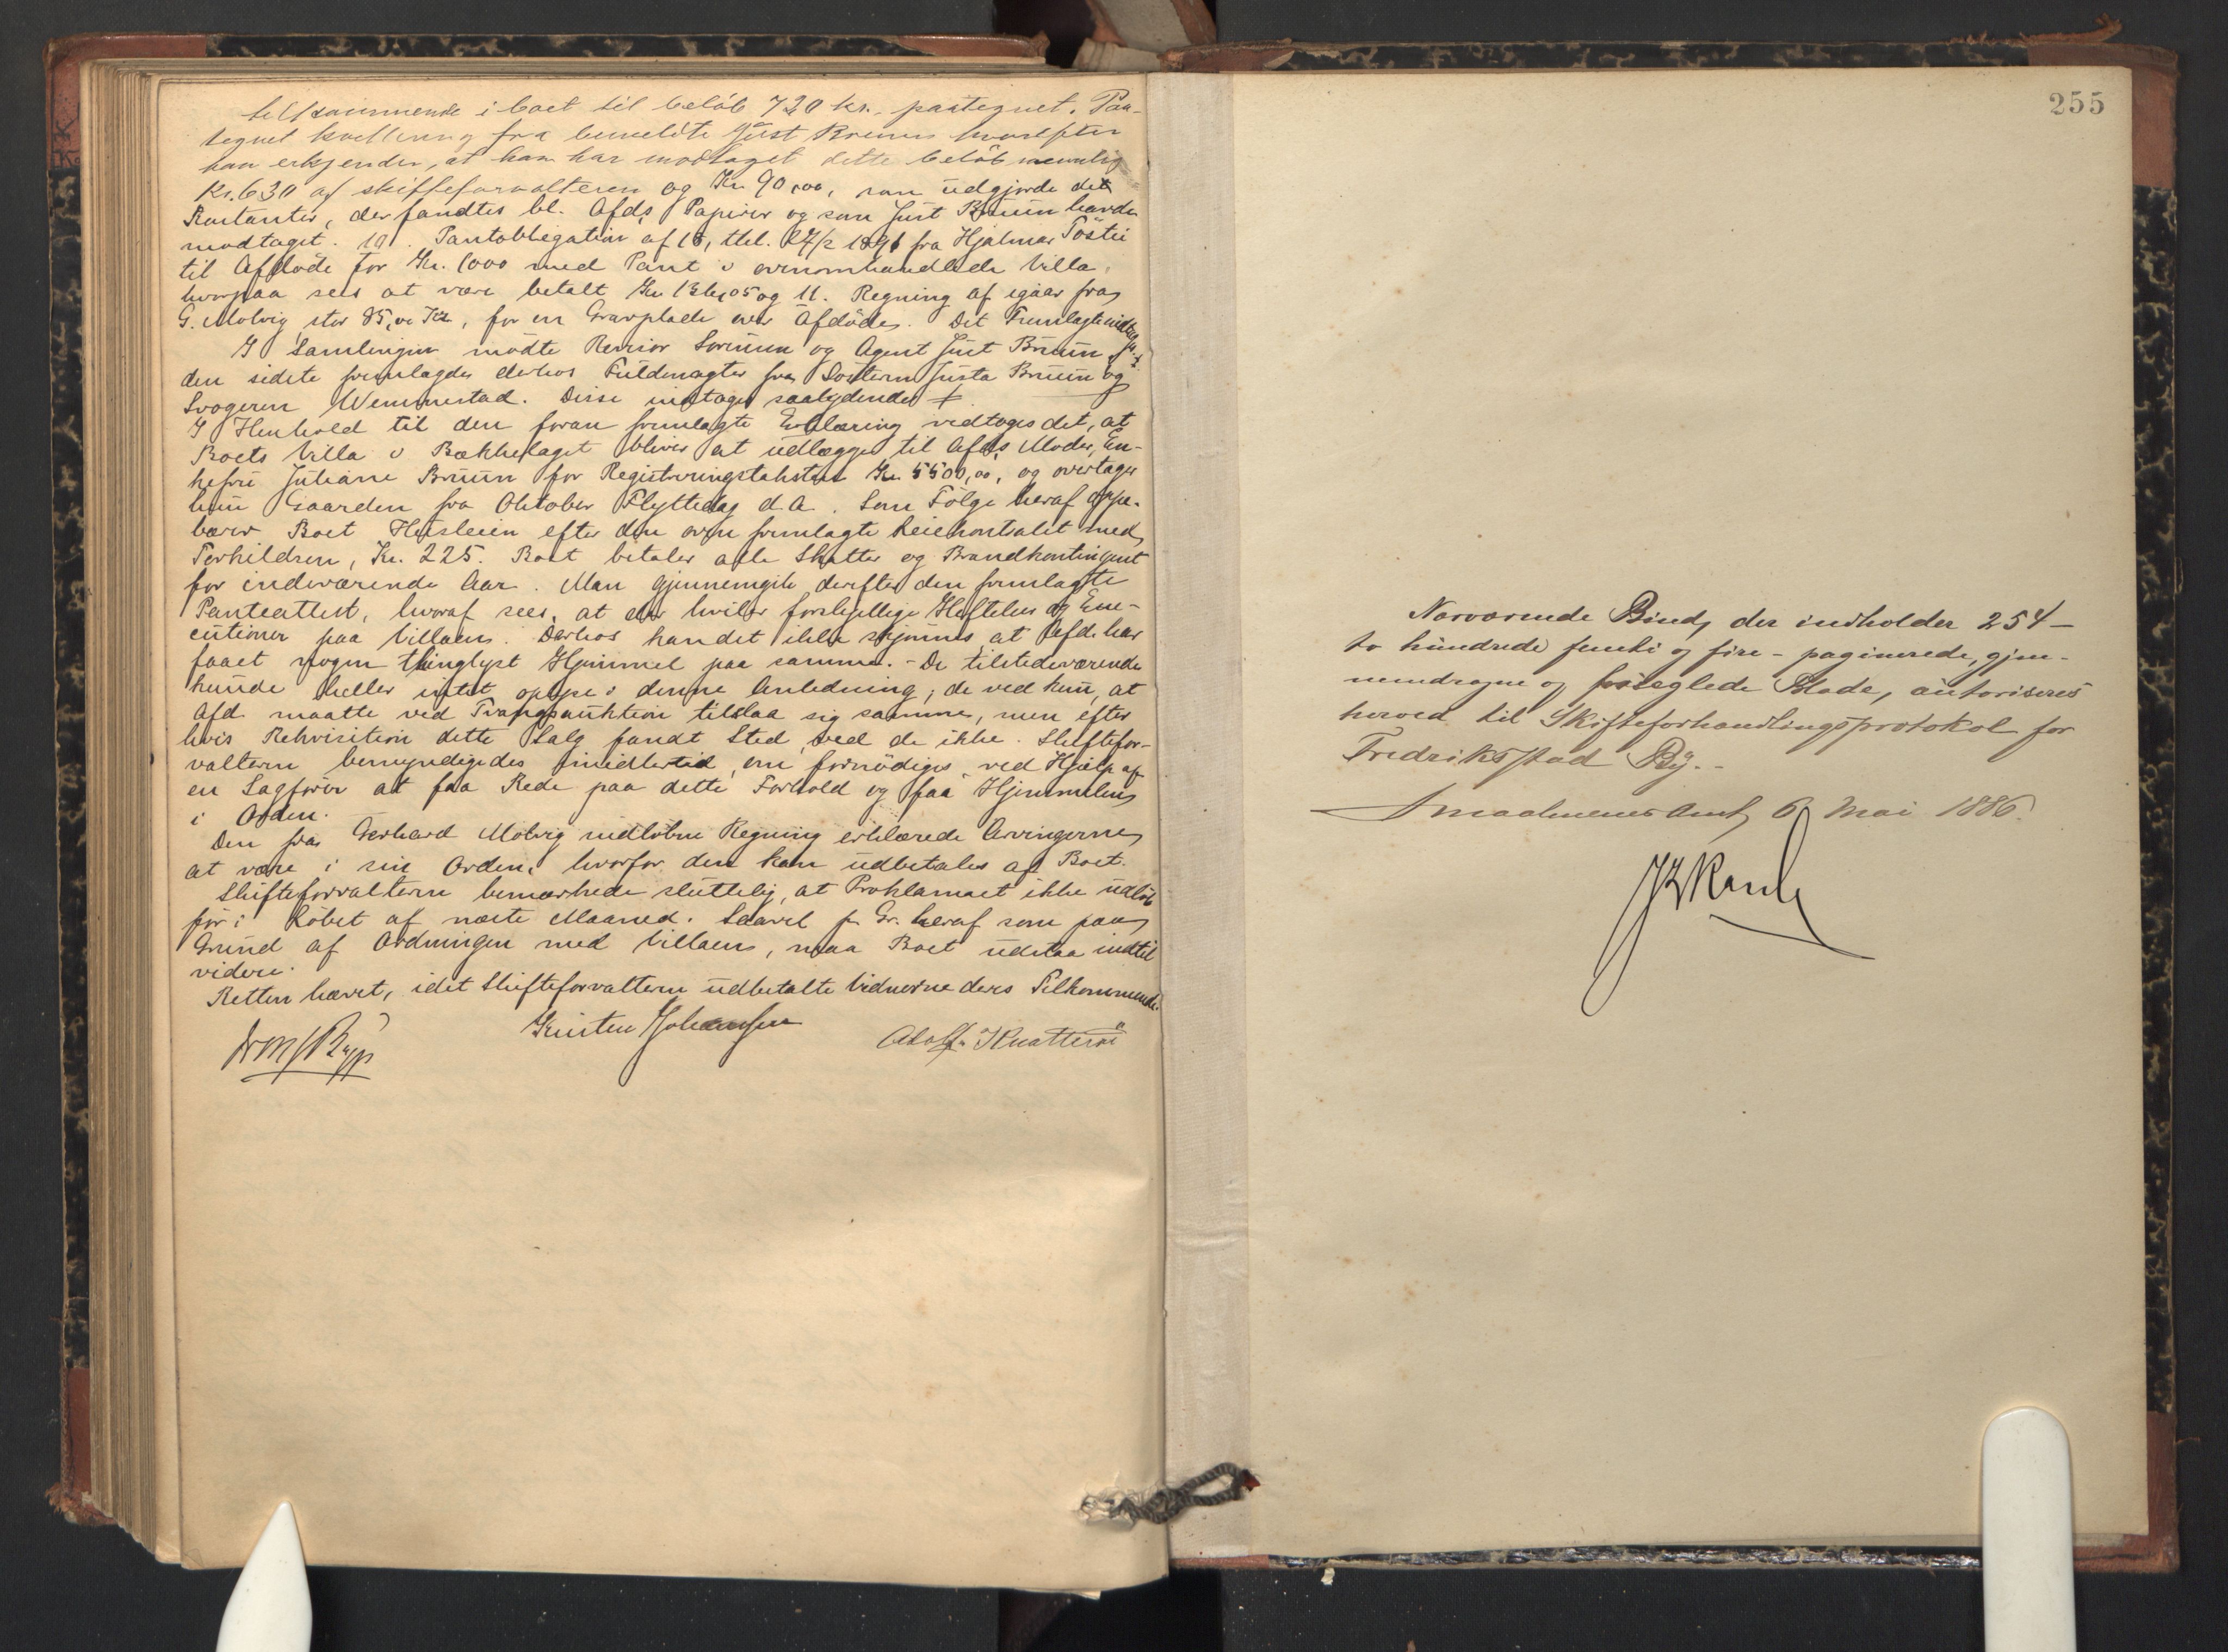 tilkommende i boet til beløb 720 kr. paategnet. Paa-
tegnet kvittering fra bemeldte Just Bruun hvorefter
han erkjender, at han har modtaget dette beløb nemlig
Kr. 630 af skifteforvalteren og Kr. 90,00, som udgjorde det
Kontanter, der fandtes bl. Afds Papirer og som Just Bruun havde
modtaget. 10. Pantobligation af 15, ttel. 27/2 1891 fra Hjalmar
til Afdøde for Kr. 1000 med Pant i ovenomhandlede Villa,
hvorpaa sees at være betalt Kr. og 11. Regning af igaar fra
G. Molvig stor 85,00 Kr, for en Gravplade over Afdøde. Det Fremlagte
I Samlingen mødte Revisor Sørensen og Agent Just Bruun,
den sidste fremlagde derhos Fuldmagter fra Søsteren Justa Bruun og
Svogeren Wennerstad. Disse indtages saalydende +
I Henhold til den foran fremlagte Erklæring vedtoges det, at
Boets Villa i Bækkelaget bliver at udlægge til Afds Moder, En-
kefru Juliane Bruun for Registreringstaksten Kr. 5500,00, og overtager
hun Gaarden fra Oktober Flyttedag d.A. Som Følge heraf oppe-
bærer Boet Husleien efter den oven fremlagte Leiekontrakt med
Torkildsen, Kr. 225. Boet betaler alle Skatter og Brandkontingent
for indeværende Aar. Man gjennemgik derefter den fremlagte
Panteattest, hvoraf sees, at der hviler forskjellige Heftelser og Exe-
cutioner paa Villaen. Derhos kan det ikke skjønnes at Afd. har
faaet nogen thinglyst Hjemmel paa samme. - De tilstedeværende
kunde heller intet oplyse i denne Anledning; de ved kun, at
Afd. maatte ved Tvangsauktion tilslaa sig samme, men efter
hvis Rekvisition dette Salg fandt Sted, ved de ikke. Skiftefor-
valteren bemyndigedes imidlertid, om fornødiges ved Hjælp af
en Sagfører at faa Rede paa dette Forhold og faa Hjemmelen
i Orden.
Den fra Gerhard Molvig indløbne Regning erklærede Arvingerne
at være i sin Orden, hvorfor den kan udbetales af Boet.
Skifteforvalteren bemærkede sluttelig, at Proklamaet ikke udløb
før i Løbet af næste Maaned. Saavel p. Gr. heraf som paa
Grund af Ordningen med Villaen, maa Boet udstaa indtil
videre.
Retten hævet, idet Skifteforvalteren udbetalte Vidnerne deres Tilkommende.
Kristen Johansen Adolf Knatterød
255
Nærværende Bind, der indholder 254 -
to hundrede femti og fire - paginerede, gjen-
nemdragne og forseglede Blade, autoriseres
herved til Skifteforhandlingsprotokol for
Fredriksstad By. -
Smaalenenes Amt, 6 Mai 1886.